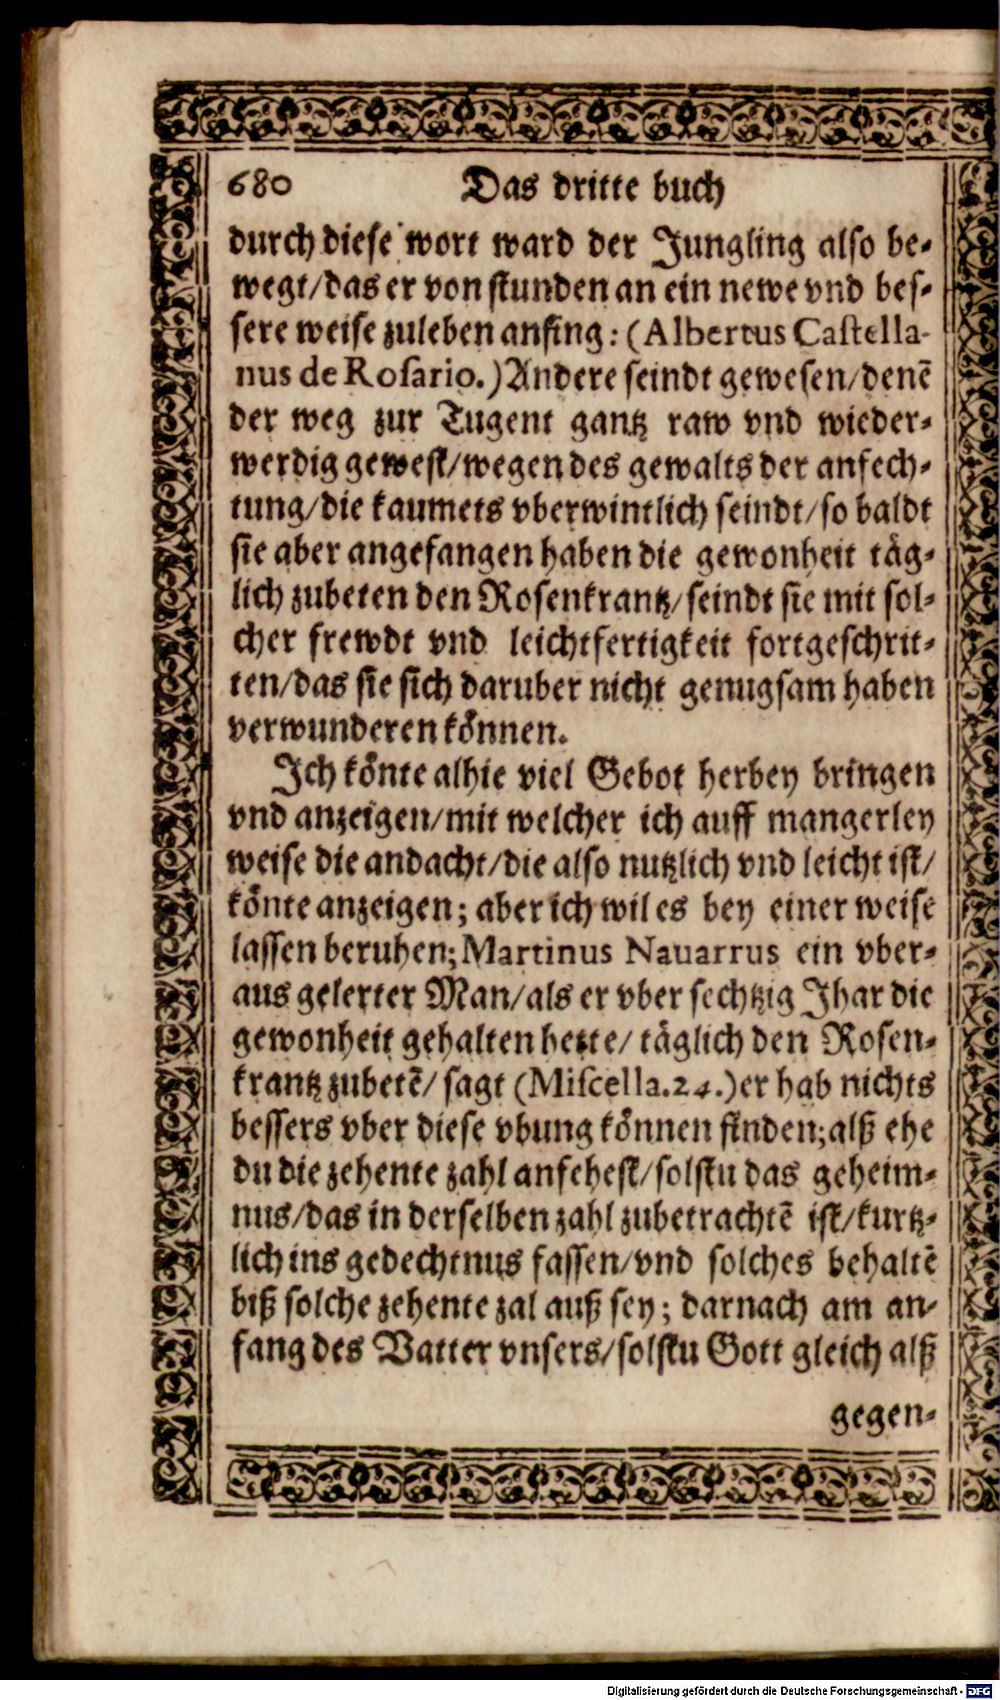 680 Das dritte buch
durch diese wort ward der Jungling also be-
wegt/das er von stunden an ein newe vnd bes-
sere weise zuleben anfing: (Albertus Castella-
nus de Rosario.) Andere seindt gewesen/denē
der weg zur Tugent gantz raw vnd wieder-
werdig gewest/wegen des gewalts der anfech-
tung/die kaumets vberwintlich seindt/so baldt
sie aber angefangen haben die gewonheit täg-
lich zubeten den Rosenkrantz/seindt sie mit sol-
cher frewdt vnd leichtfertigkeit fortgeschrit-
ten/das sie sich daruber nicht genugsam haben
verwunderen können.
Ich könte alhie viel Gebot herbey bringen
vnd anzeigen/mit welcher ich auff mangerley
weise die andacht/die also nutzlich vnd leicht ist/
könte anzeigen; aber ich wil es bey einer weise
lassen beruhen; Martinus Nauarrus ein vber-
aus gelerter Man/als er vber sechtzig Jhar die
gewonheit gehalten hette/ täglich den Rosen-
krantz zubetē/ sagt (Miscella.24.) er hab nichts
bessers vber diese vbung können finden; alß ehe
du die zehente zahl anfehest/solstu das geheim-
nus/das in derselben zahl zubetrachtē ist/kurtz-
lich ins gedechtnus fassen/vnd solches behaltē
biß solche zehente zal auß sey; darnach am an-
fang des Vatter vnsers/solstu Gott gleich alß
gegen-
Digitalisierung gefördert durch die Deutsche Forschungsgemeinschaft - DFG